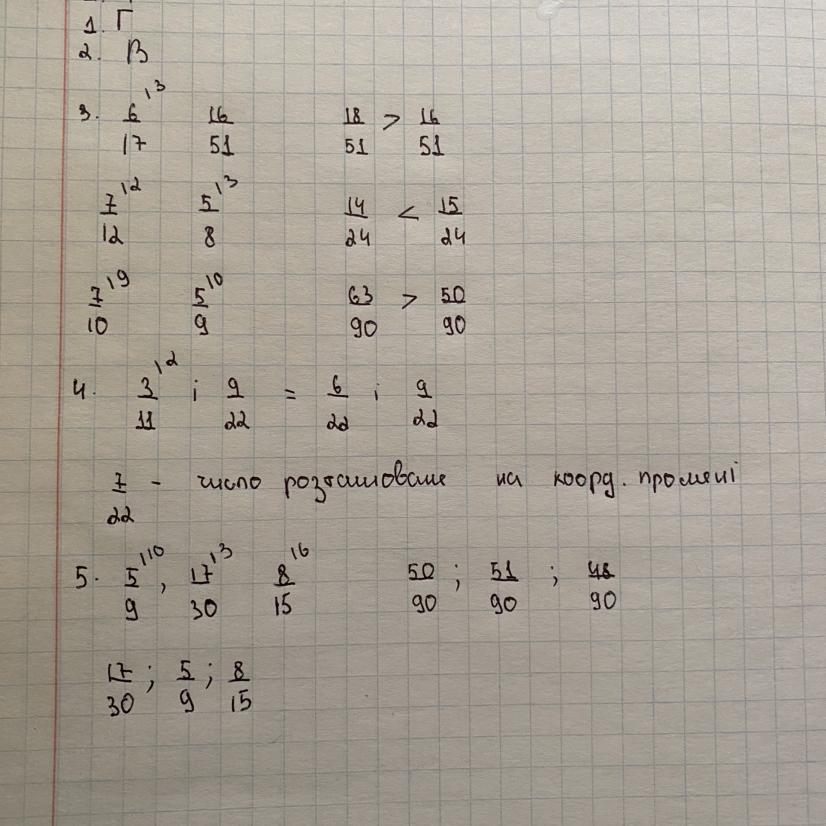 1. Г
2. В
3. 6/17 \3 16/51 18/51 > 16/51
7/12 \2 5/8 \3 14/24 < 15/24
7/10 \9 5/9 \10 63/90 > 50/90
4. 3/11 \2 і 9/22 = 6/22 і 9/22
7/22 - число розташоване на коорд. промені
5. 5/9 \10, 17/30 \3 8/15 \6 50/90 ; 51/90 ; 48/90
17/30 ; 5/9 ; 8/15